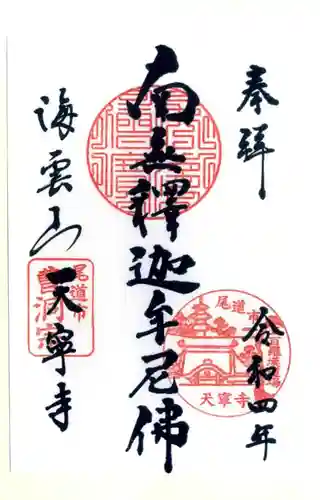 奉拝
令和四年
南無釋迦牟尼佛
海雲山
天寧寺
尾道市
曹洞宗
尾道市
天寧寺